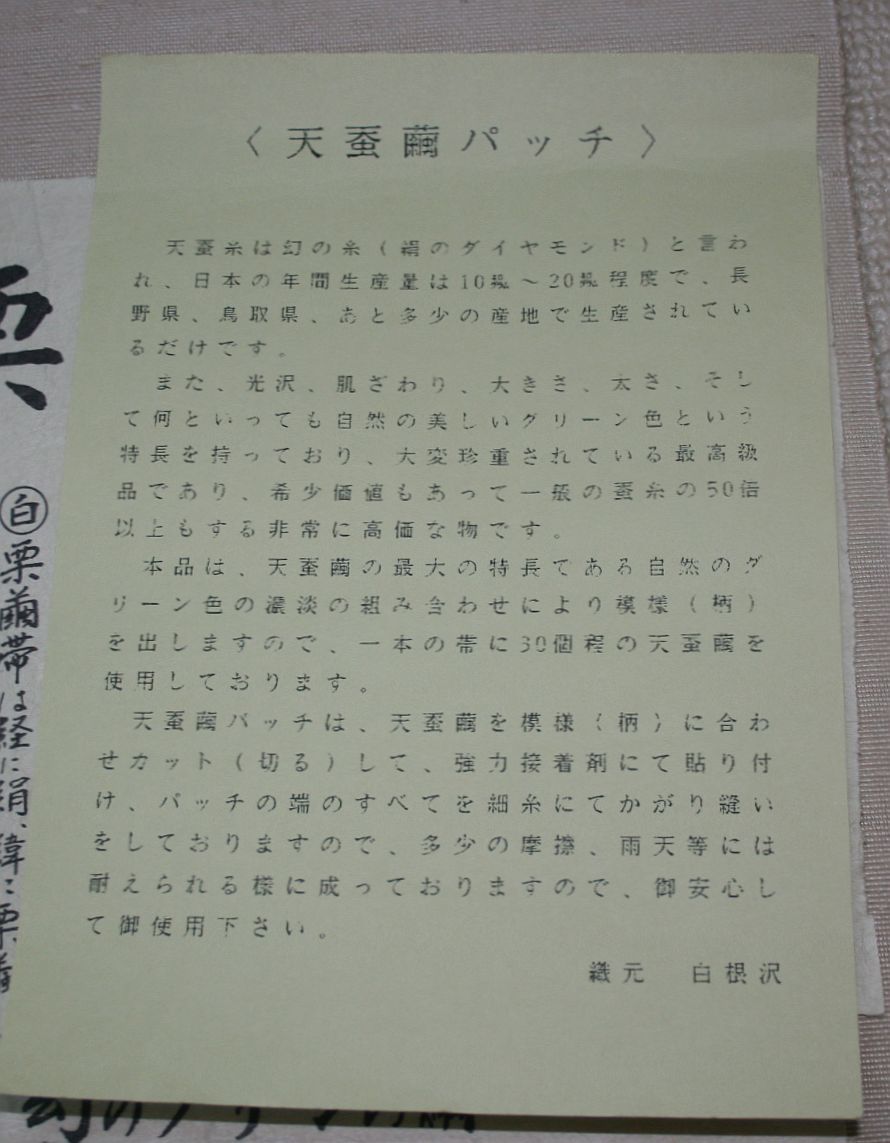 〈天蚕繭パッチ〉
天蚕糸は幻の糸(絹のダイヤモンド)と言わ
れ、日本の年間生産量は10㌔~20㌔程度で、長
野県、鳥取県、あと多少の産地で生産されてい
るだけです。
また、光沢、肌ざわり、大きさ、太さ、そし
て何といっても自然の美しいグリーン色という
特長を持っており、大変珍重されている最高級
品であり、希少価値もあって一般の蚕糸の50倍
以上もする非常に高価な物です。
本品は、天蚕繭の最大の特長である自然のグ
リーン色の濃淡の組み合わせにより模様(柄)
を出しますので、一本の帯に30個程の天蚕繭を
使用しております。
天蚕繭パッチは、天蚕繭を模様(柄)に合わ
せカット(切る)して、強力接着剤にて貼り付
け、パッチの端のすべてを細糸にてかがり縫い
をしておりますので、多少の摩擦、雨天等には
耐えられる様に成っておりますので、御安心し
て御使用下さい。
織元 白根沢
白
栗繭帯は経に絹、緯に栗繭